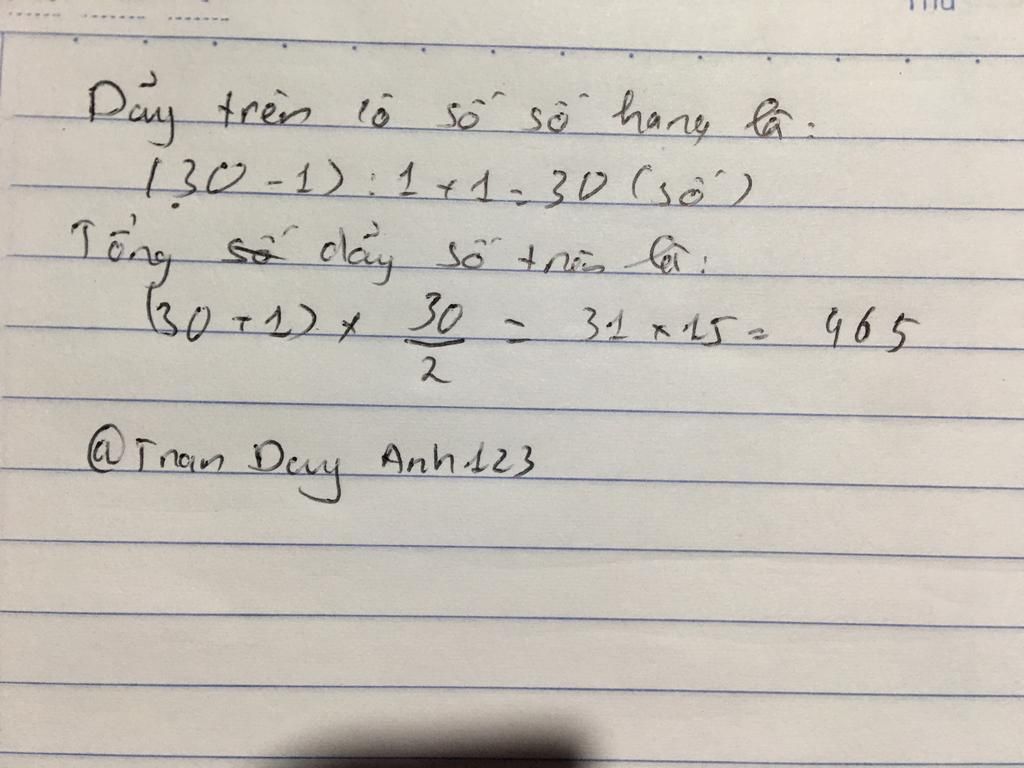 Thứ
Dảy trên có số số hang là:
(30 - 1) : 1 + 1 = 30 (số)
Tổng số dảy số trên là:
(30 + 1) × 30/2 = 31 × 15 = 465
@Tran Day Anh123